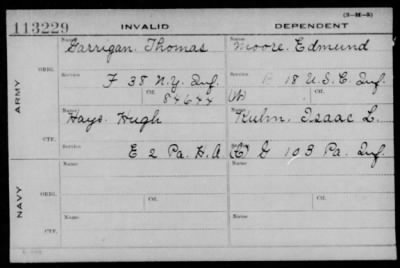 (3-M-5)
113229 INVALID DEPENDENT
Name: Name:
Garrigan, Thomas Moore, Edmund
ARMY
ORIG.
Service Service
F 38 N.Y. Inf. 18 U.S.C Inf.
Ctf. 84644 Ctf. (W)
Name: Name:
Hays, Hugh Kuhn, Isaac L.
CTF.
Service Service
E 2 Pa. H.A. G 103 Pa. Inf.
NAVY
Name: Name:
ORIG.
Service Ctf. Service Ctf.
Name: Name:
CTF.
Service Service